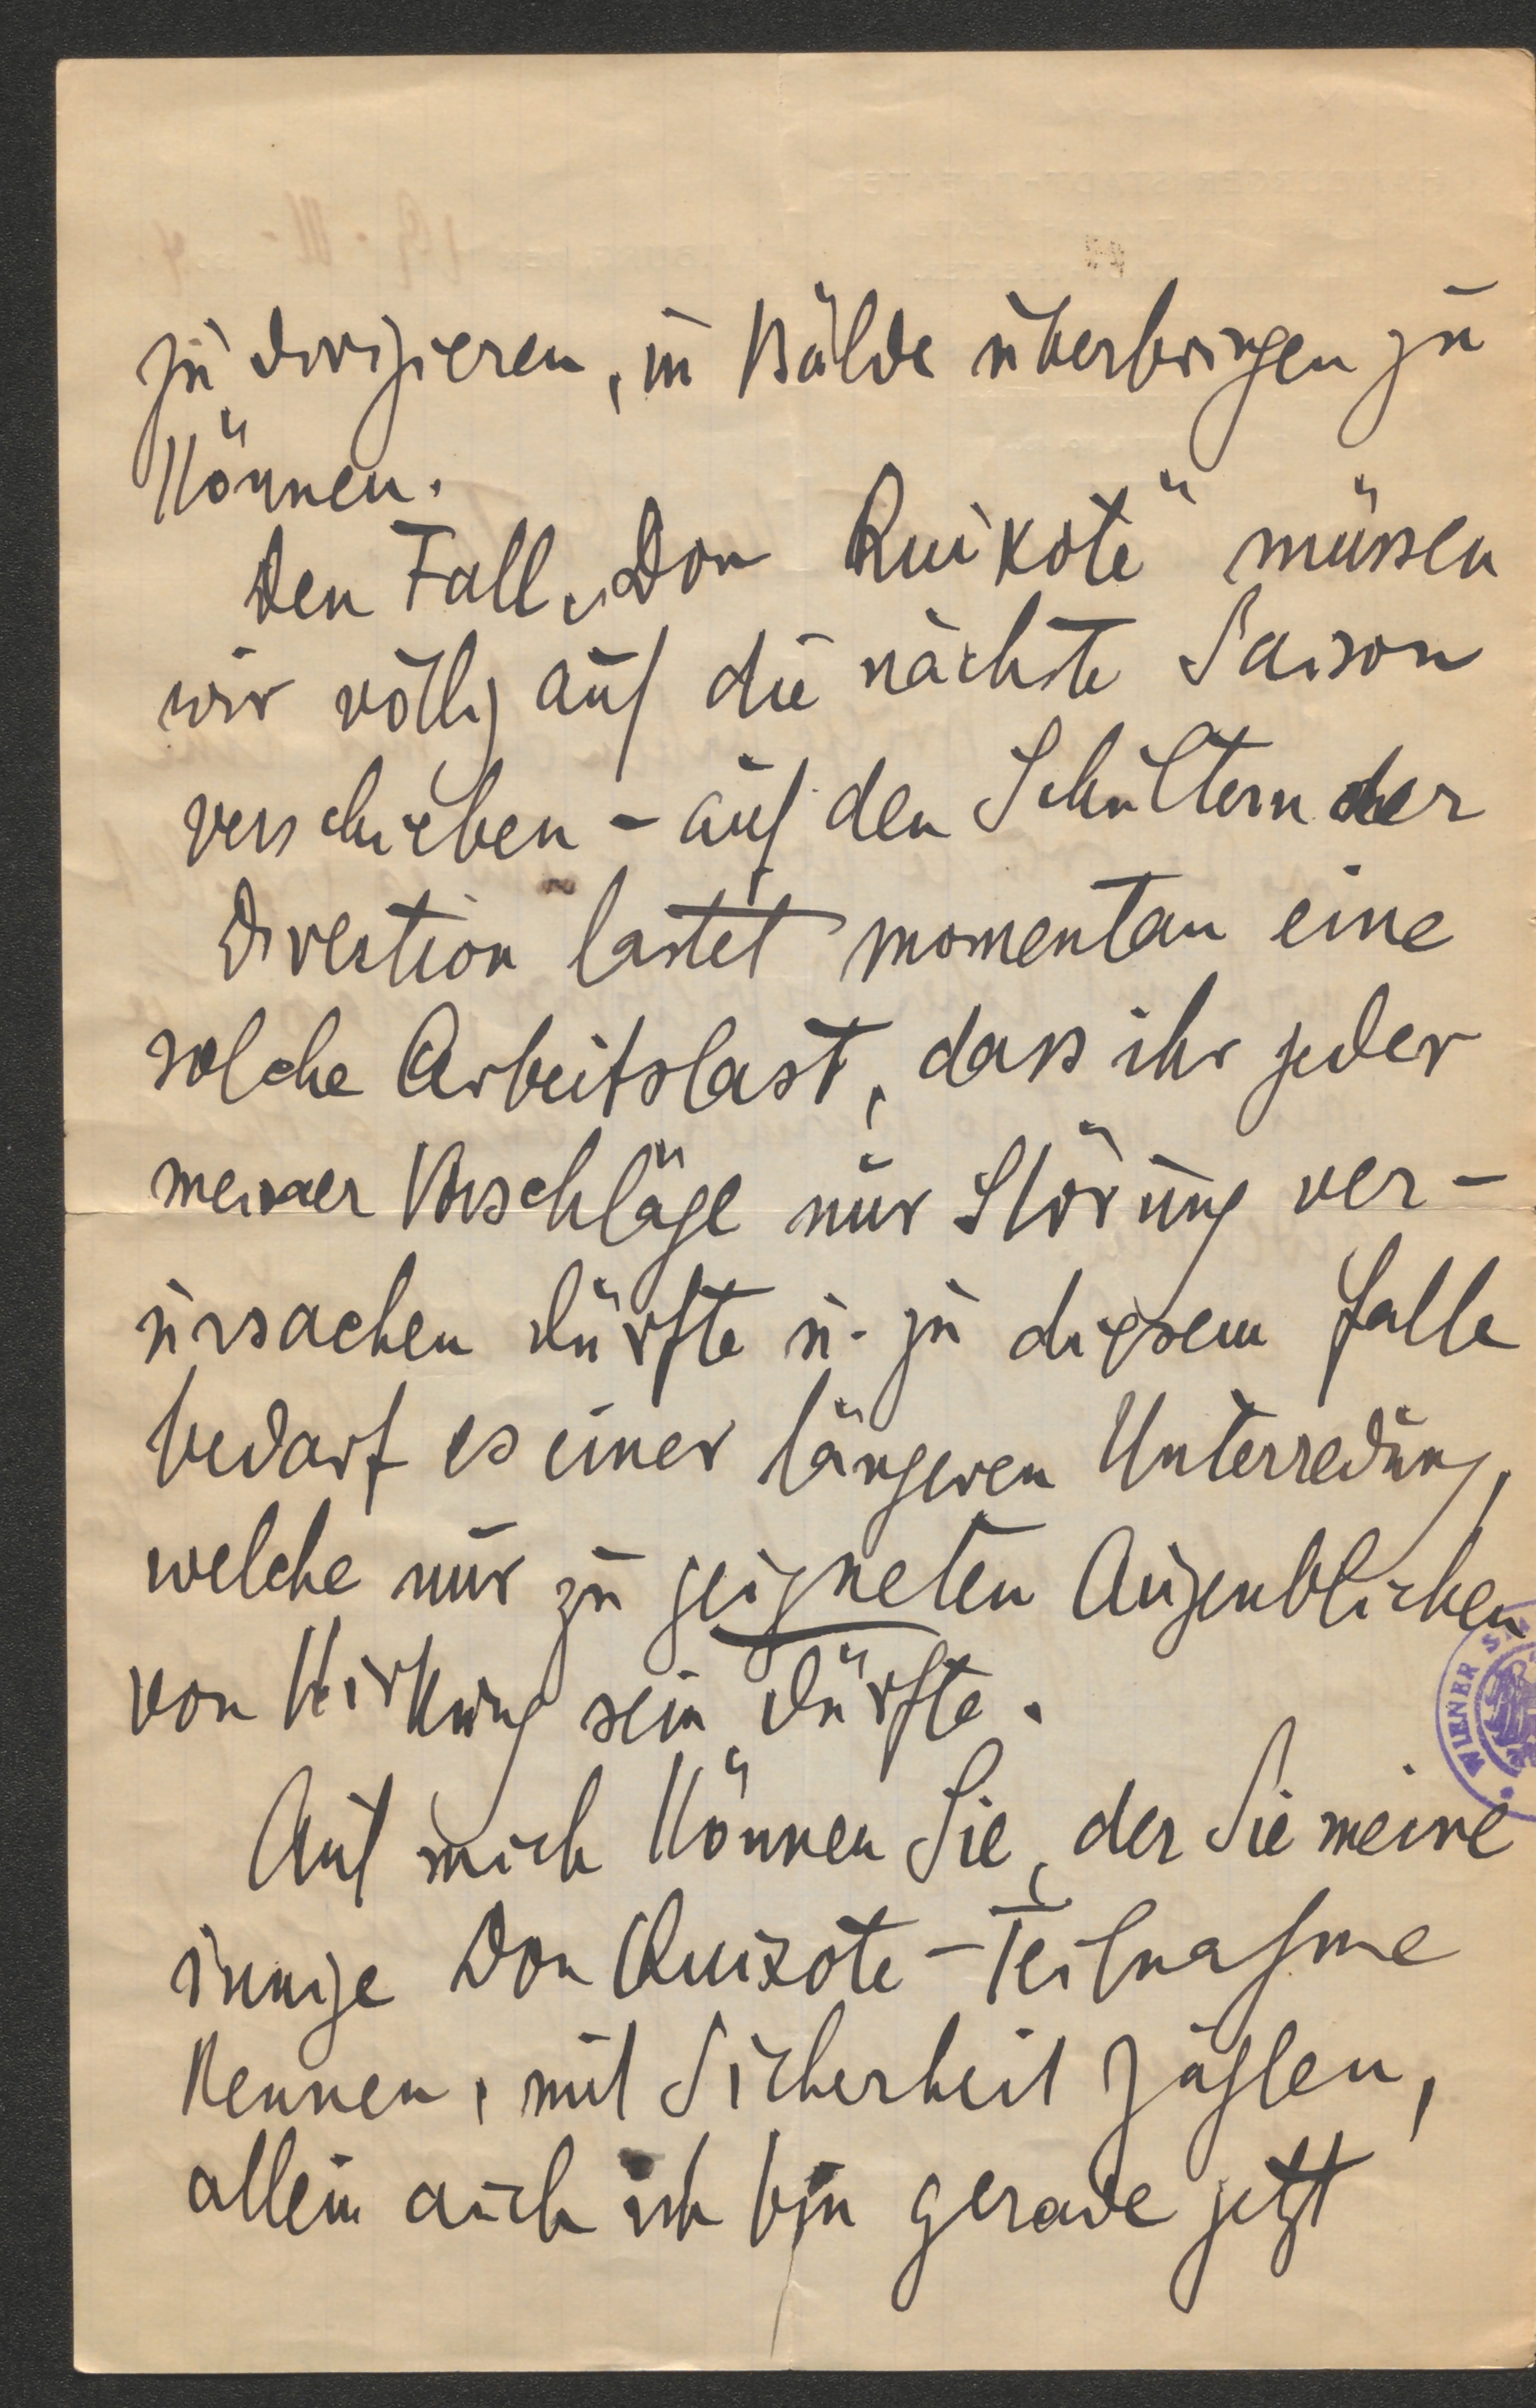 zu dirigieren, in Bälde überbringen zu
können.
Den Fall „Don Quixote" müssen
wir völlig auf die nächste Saison
verschieben - auf den Schultern der
Direction lastet momentan eine
solche Arbeitslast, dass ihr jeder
meiner Vorschläge nur Störung ver-
ursachen dürfte u. zu diesem Falle
bedarf es einer längeren Unterredung,
welche nur zu geigneten Augenblicken
von Wirkung sein dürfte.
Auf mich können Sie, der Sie meine
innige Don Quixote-Teilnahme
kennen, mit Sicherheit zählen,
allein auch ich bin gerade jetzt
WIENER